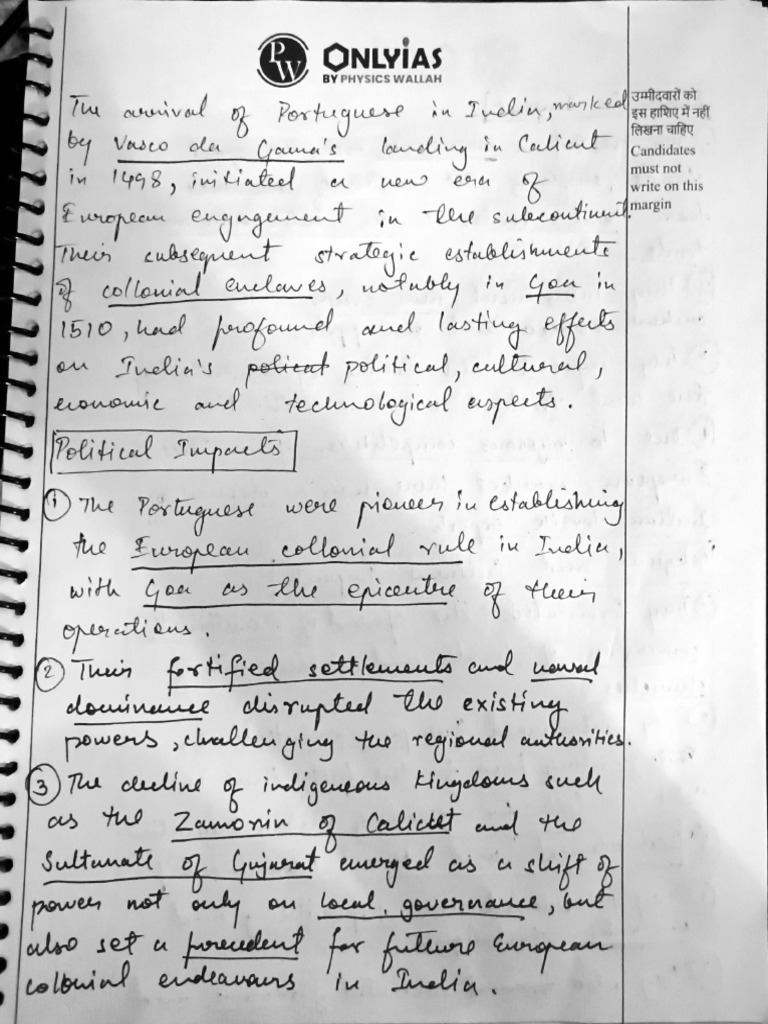 PW ONLYIAS
BY PHYSICS WALLAH
उम्मीदवारों को
इस हाशिए में नहीं
लिखना चाहिए
Candidates
must not
write on this
margin
The arrival of Portuguese in India, marked
by Vasco da Gama's landing in Calicut
in 1498, initiated a new era of
European engagement in the subcontinent.
Their subsequent strategic establishments
of collonial enclaves, notably in Goa in
1510, had profound and lasting effects
on India's policat political, cultural,
economic and technological aspects.
Political Impacts
① The Portuguese were pioneer in establishing
the European collonial rule in India,
with Goa as the epicentre of their
operations.
② Their fortified settlements and naval
dominance disrupted the existing
powers, challenging the regional authorities.
③ The decline of indigeneous kingdoms such
as the Zamorin of Calicut and the
Sultanate of Gujarat emerged as a shift of
power not only on local governance, but
also set a precedent for future European
colonial endeavours in India.